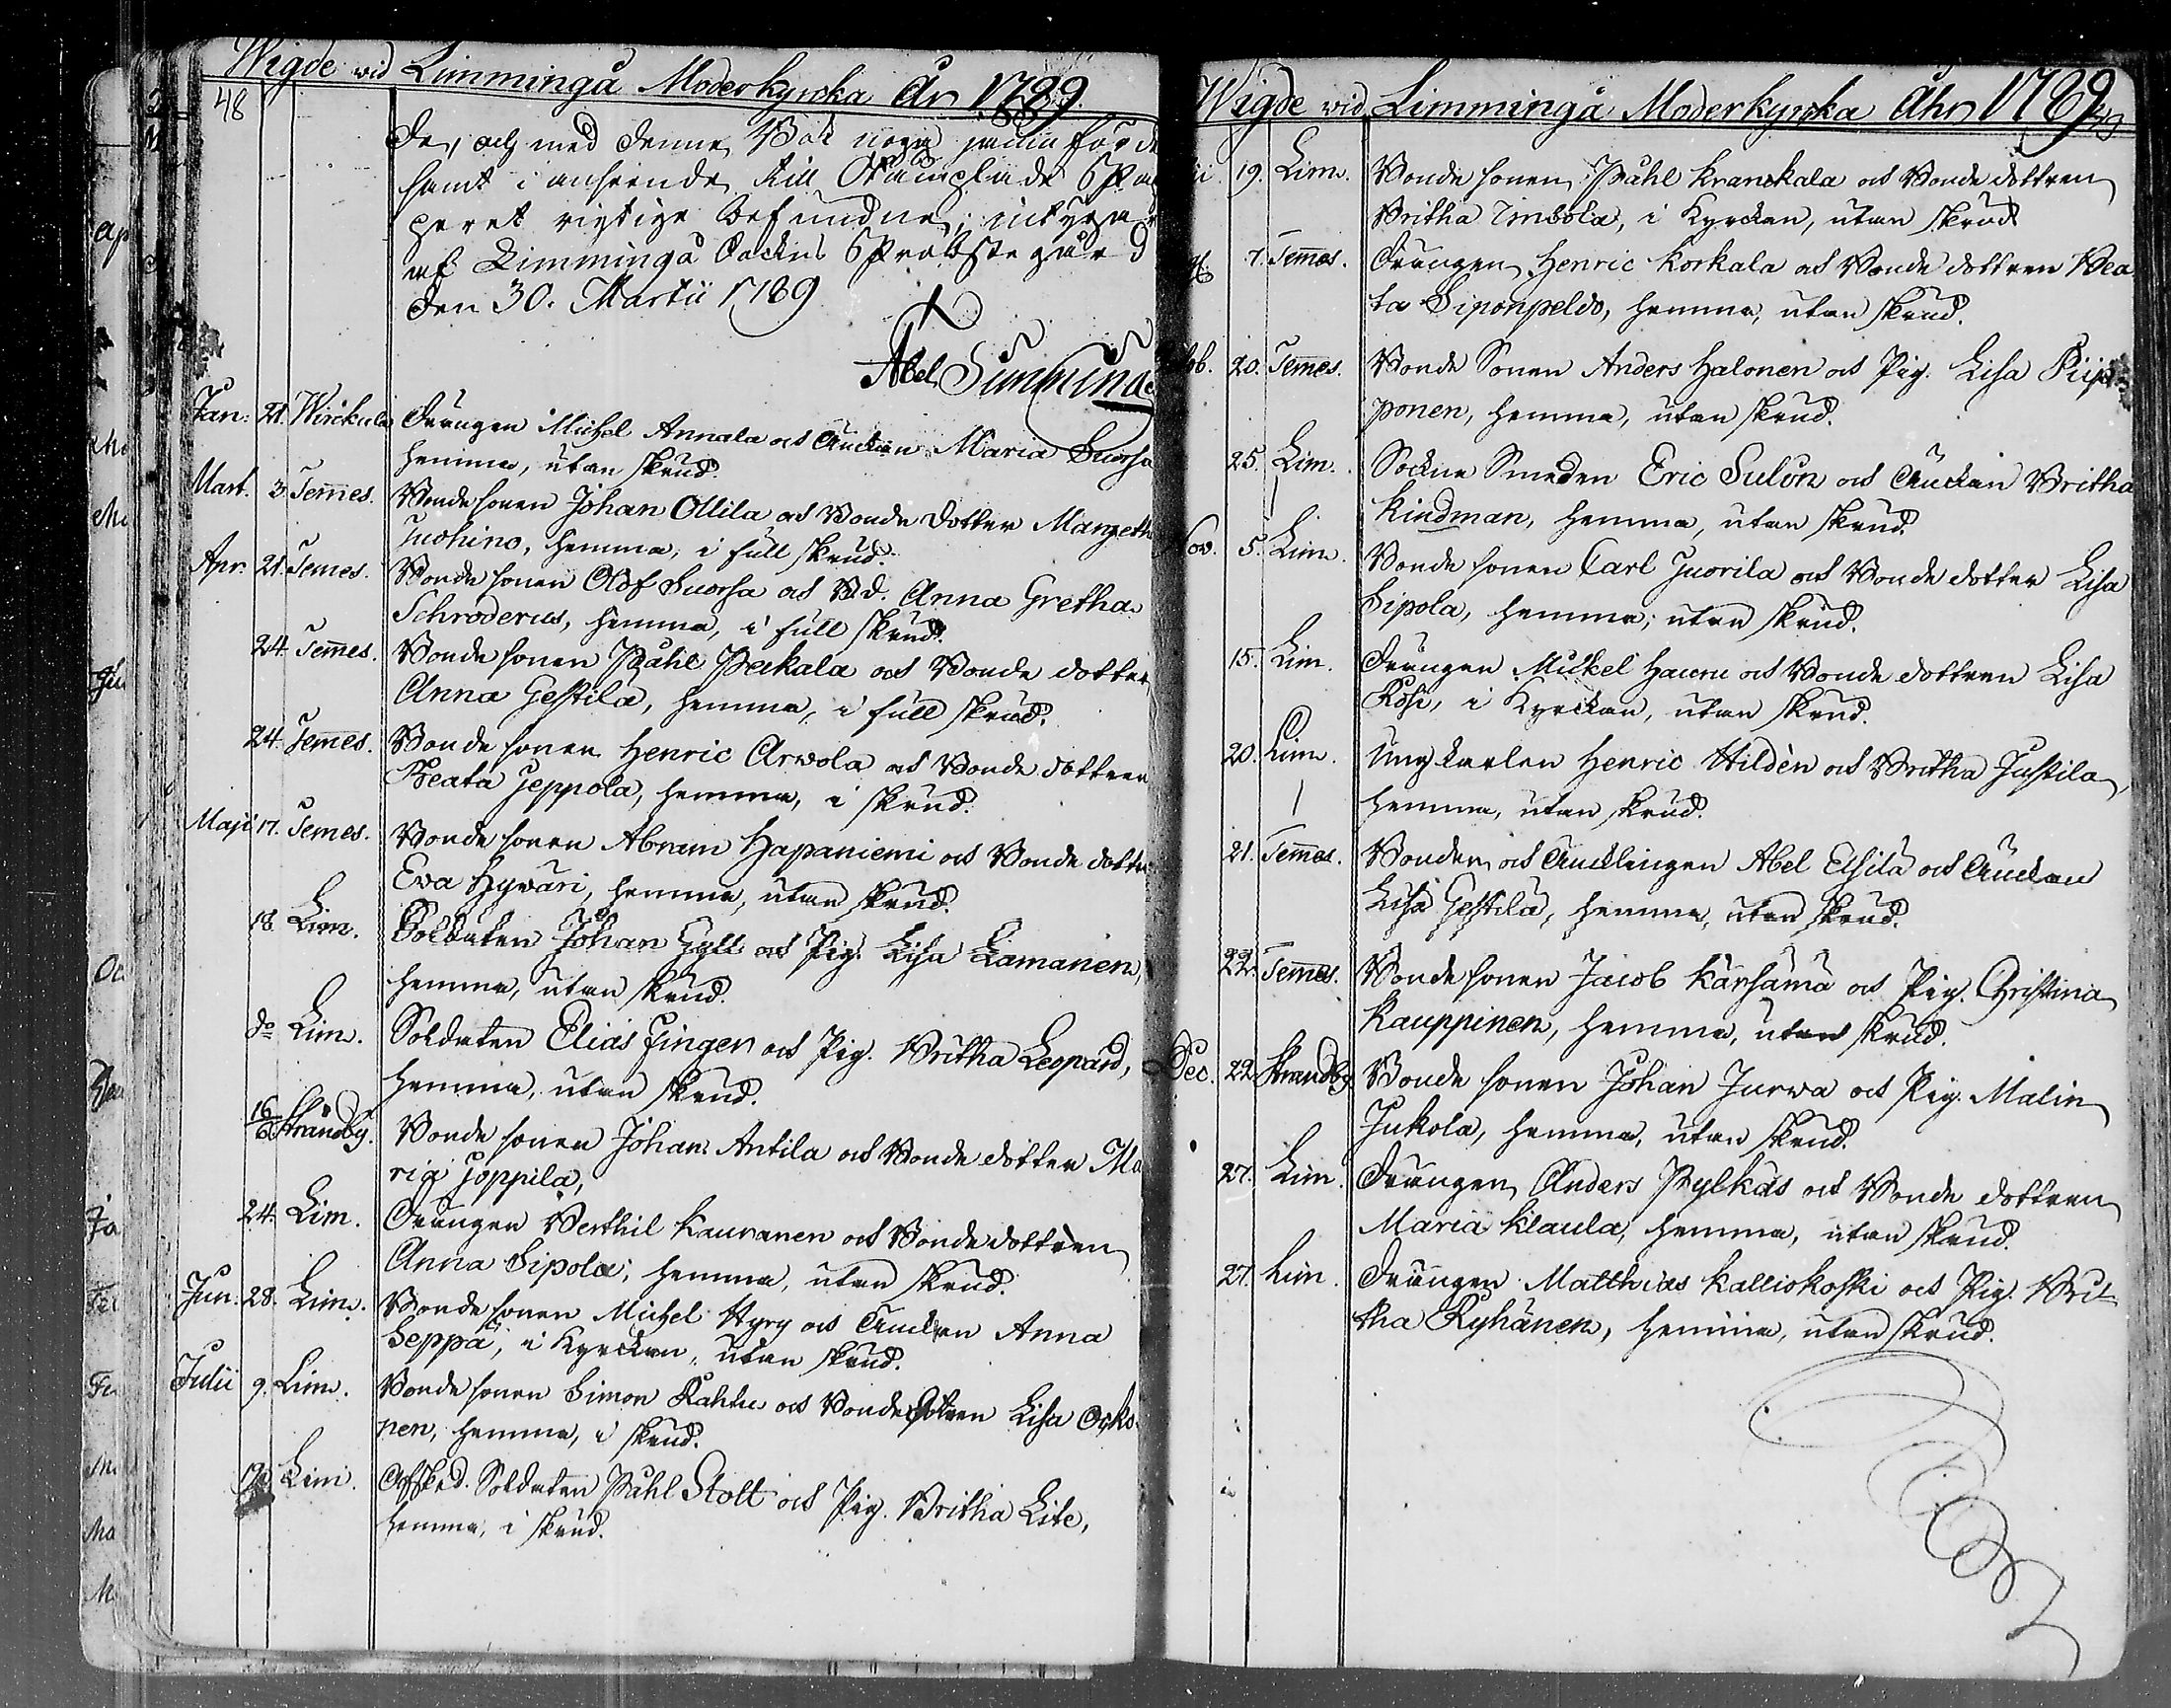 Wigde wid Limmingå Moderkyrcka År 1789.
48
de, och med denne Bok noga jemnförde
samt i anseende till Stämplade Pap
peret rigtige befundne; intygar
af Limmingå Sockns Probstegård
den 30. Martii 1789
Abel
Jan: 21. Wirckula Drängen Michel Annala och Änckan Maria Suorsa
hemma, utan skrud.
Mart. 3. Temmes. Bonde sonen Johan Ollila och Bonde dotter Margetha
Juohino, hemma, i full skrud.
Apr. 21. Temes. Bonde sonen Olof Suorsa och B.d. Anna Gretha
Schroderus, hemma, i full skrud.
24. Temmes. Bonde sonen Påhl Peckala och Bonde dotter
Anna Gestila, hemma, i full skrud.
24. Temmes. Bonde sonen Henric Arwola och Bonde dottren
Beata Jeppola, hemma, i skrud.
Maji 17. Temes. Bonde sonen Abram Hapaniemi och Bonde dottr
Eva Hywäri, hemma, utan skrud.
18. Lim. Soldaten Johan Gyll och Pig. Lisa Lamanen,
hemma, utan skrud.
do Lim. Soldaten Elias Finger och Pig. Britha Leopard,
hemma, utan skrud.
16 Strandby. Bonde sonen Johan Antila och Bonde dotter Ma
ria Joppila,
24. Lim. Drängen Berthil Kauranen och Bonde dottren
Anna Sipola, hemma, utan skrud.
Jun. 28. Lim. Bonde sonen Michel Hyry och Änckan Anna
Seppä, i Kyrckan, utan skrud.
Julii 9. Lim. Bonde sonen Simon Kahlu och Bonde dottren Lisa Orks
nen, hemma, i skrud.
Lim. Afsked. Soldaten Påhl Stolt och Pig. Britha Lite,
hemma, i skrud.
Wigde wid Limmingå Moderkyrcka Åhr 1789
19. Lim. Bonde sonen Påhl Kranckala och Bonde dottren
Britha Imbola, i Kyrckan, utan skrud
7. Temmes. Drängen Henric Korkala och Bonde dottren Bea
ta Siponpeldo, hemma, utan skrud.
20. Temmes. Bonde Sonen Anders Halonen och Pig. Lisa Piip
ponen, hemma, utan skrud.
25. Lim. Sockne Smeden Eric Sulön och Änckan Britha
Kindman, hemma, utan skrud.
Nov. 5. Lim. Bonde sonen Carl Juorila och Bonde dotter Lisa
Sipola, hemma, utan skrud.
15. Lim. Drängen Mickel Hauru och Bonde dottren Lisa
Rosi, i Kyrckan, utan skrud.
20. Lim. Ungkarlen Henric Hildèn och Britha Justila,
hemma, utan skrud.
21. Temmes. Bonden och Äncklingen Abel Elsilä och Änckan
Lisa Gestila, hemma, utan skrud.
22. Temmes. Bonde sonen Jacob Kärsämä och Pig. Christina
Kauppinen, hemma, utan skrud.
Dec. 22. Strandby. Bonde sonen Johan Jurwa och Pig. Malin
Jukola, hemma, utan skrud.
27. Lim. Drängen Anders Pylkäs och Bonde dottren
Maria Klaula, hemma, utan skrud.
27. Lim. Drängen Matthias Kalliokoski och Pig. Bri-
tha Ryhänen, hemma, utan skrud.